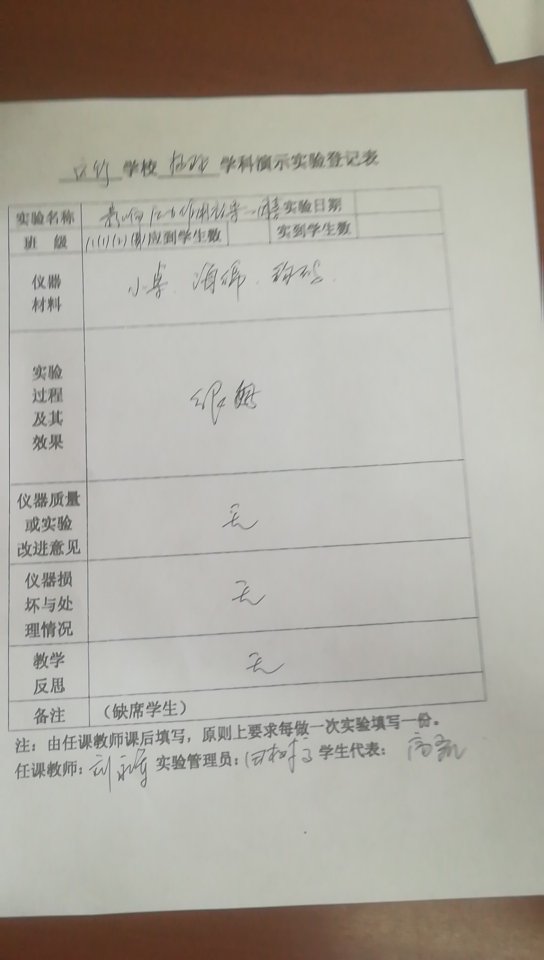 学校 物理 学科演示实验登记表
实验名称 影响压力作用效果 因素 实验日期
班 级 应到学生数 实到学生数
仪器
材料
小桌、海绵、钩码
实验
过程
及其
效果
很好
仪器质量
或实验
改进意见
无
仪器损
坏与处
理情况
无
教学
反思
无
备注 (缺席学生)
注：由任课教师课后填写，原则上要求每做一次实验填写一份。
任课教师: 刘 实验管理员: 学生代表: